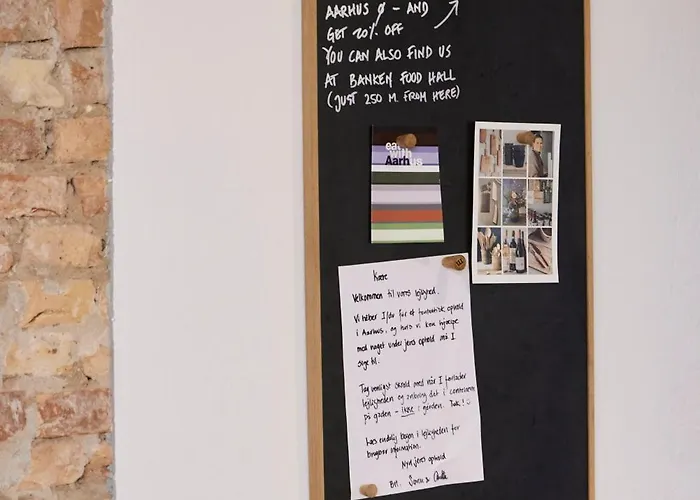 AARHUS Ø - AND
GET 20% OFF
YOU CAN ALSO FIND US
AT BANKEN FOOD HALL
(JUST 250 M. FROM HERE)
eat
with
Aarhus
Kære
Velkommen til vores lejlighed.
Vi håber I får et fantastisk ophold
i Aarhus, og hvis vi kan hjælpe
med noget under jeres ophold må I
sige til.
Tag venligst skrald med når I forlader
lejligheden og anbring det i containerne
på gaden - ikke i gården. Tak!
Læs endelig bogen i lejligheden for
brugbar information.
Nyd jeres ophold
Bh. Søren &